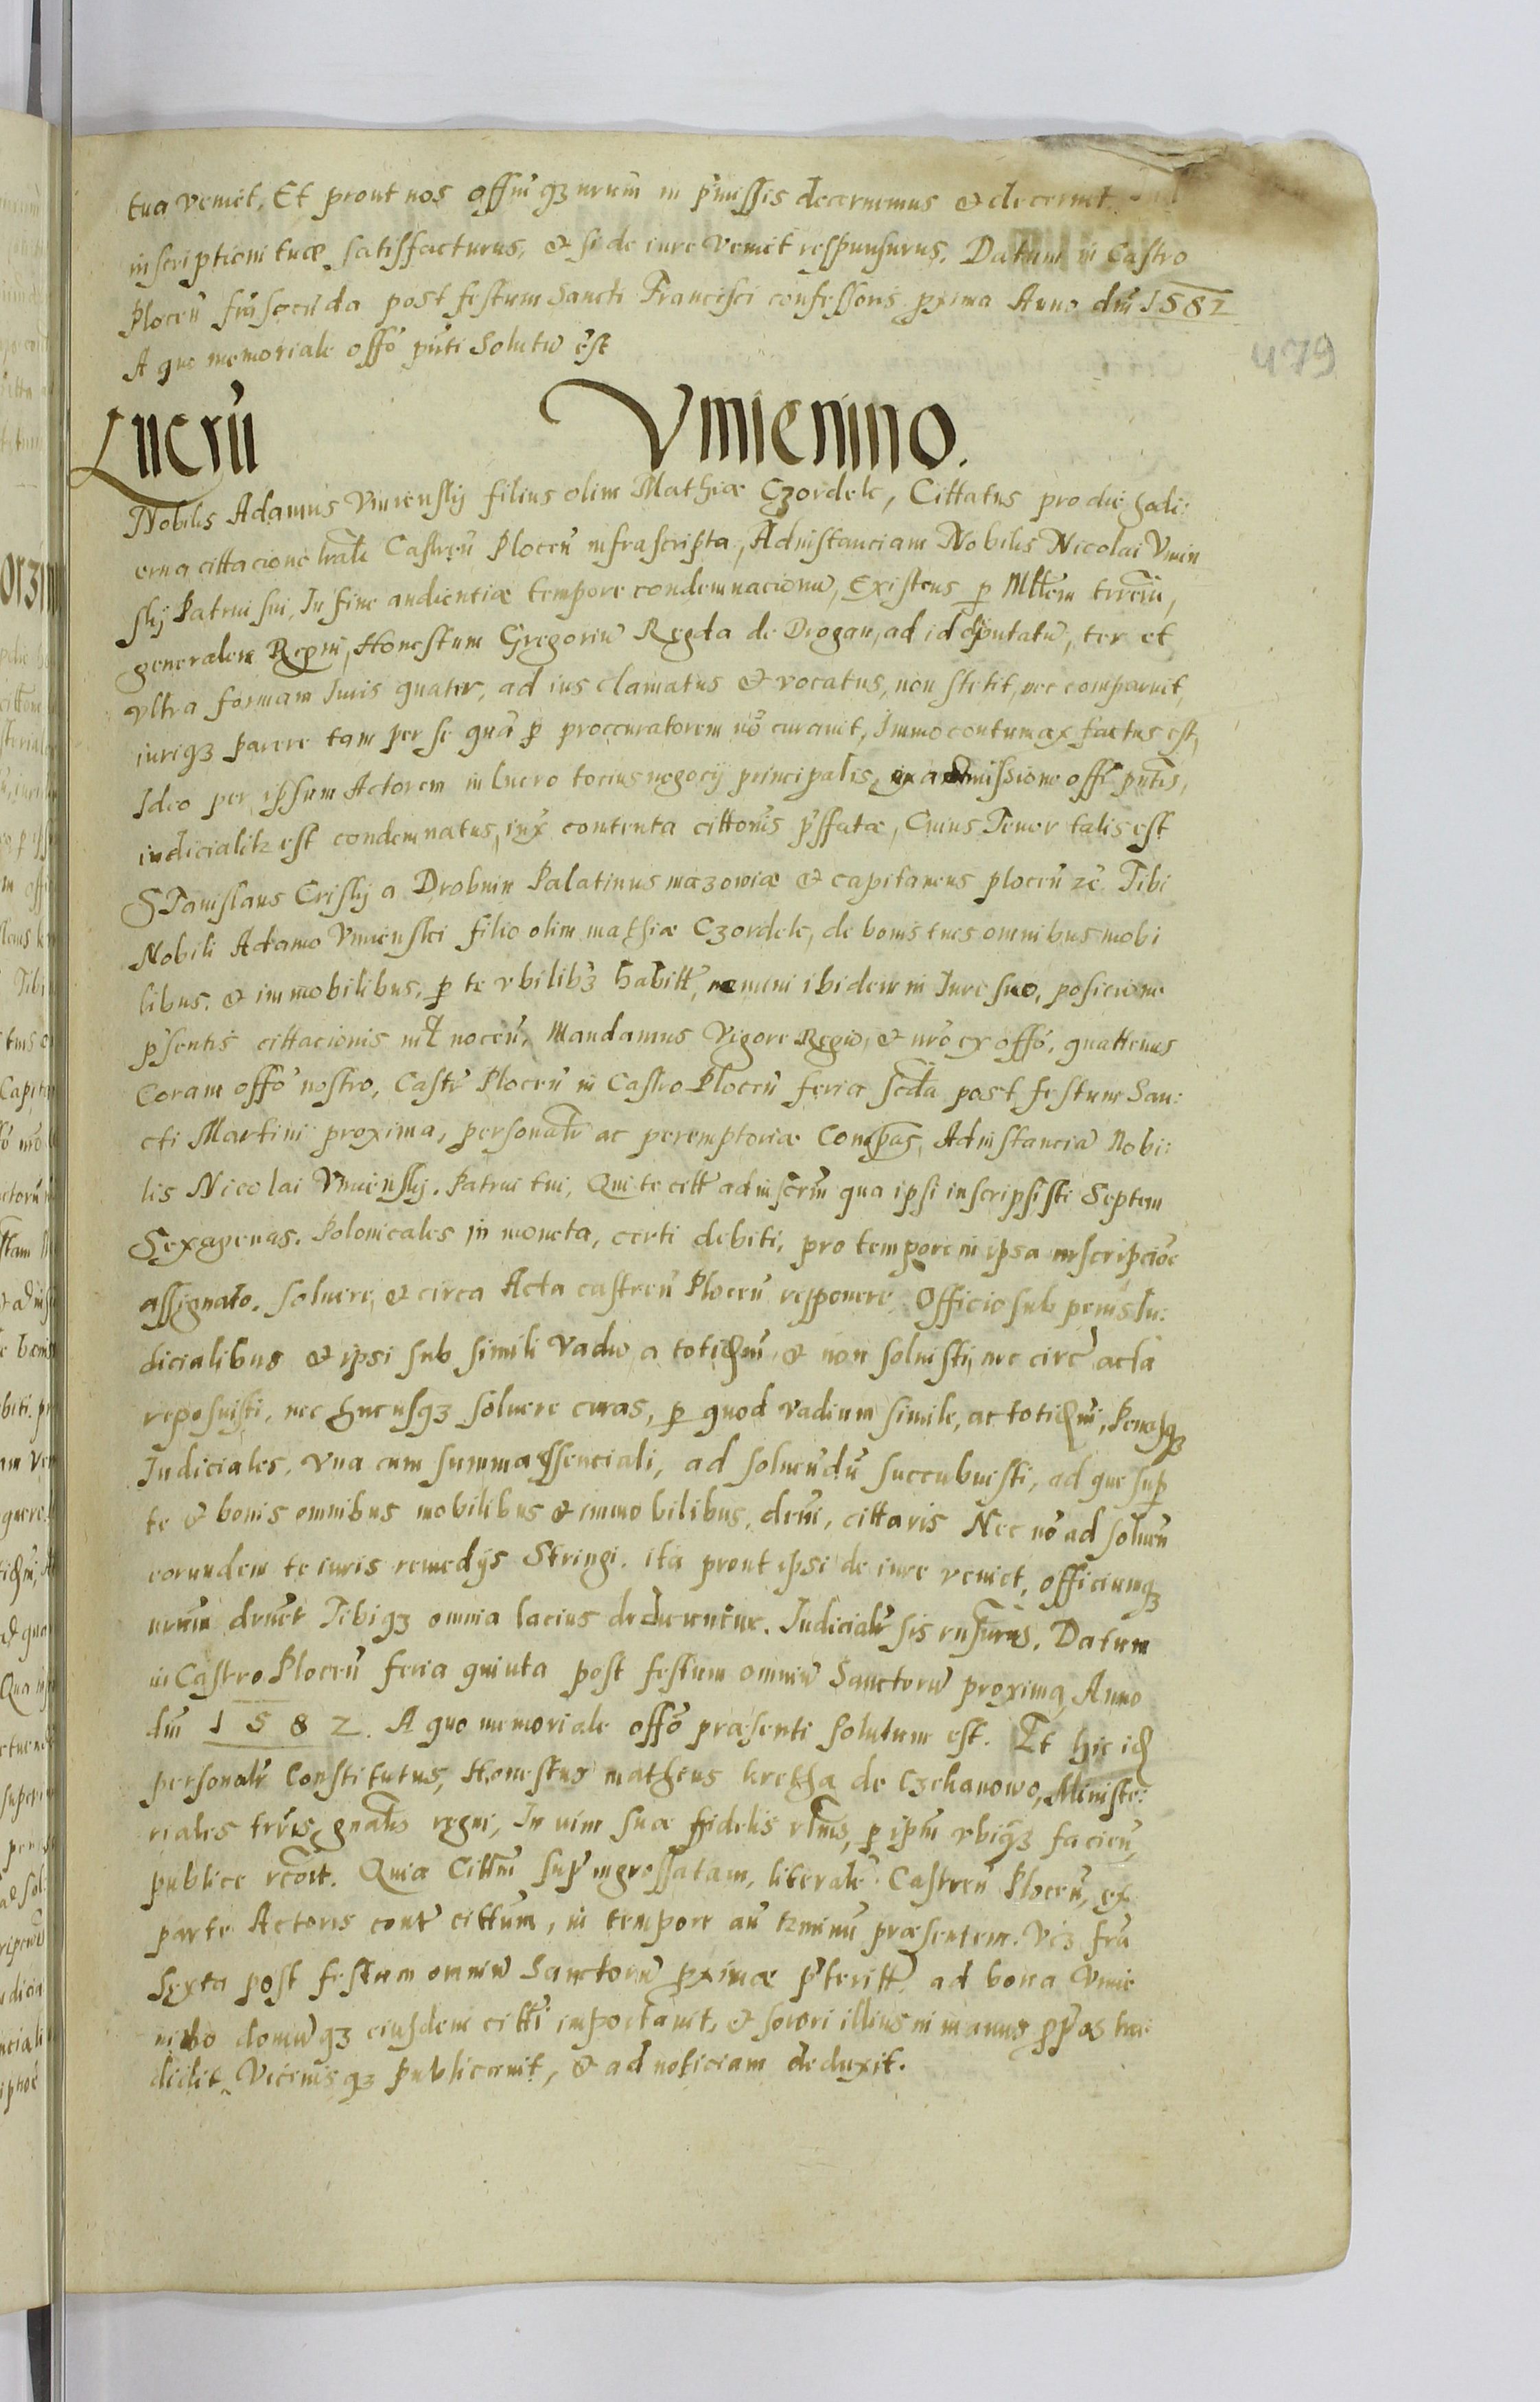 tua veniet, Et prout nos offm qz nrum in pmissis decernemus & decernet
inscriptioni tuæ satisfacturus, & si de iure veniet respunsurus. Datum in Castro
Plocen̄ fr̄ia secūda post festum Sancti Francisci confessoris pxima Anno dni 1582
A quo memoriale offō pn̄ti Solutū est
479
Lucrū Vmienino.
Nobilis Adamus Vmienskij filius olim Mathiæ Czordele, Cittatus pro die hodi:
erna cittacione lrali Castren̄ Plocen̄ infrascripta, Ad instanciam Nobilis Nicolai Vmien
skij Patrui sui, In fine audientiæ tempore condemnacionū, Existens p Mltem trrem,
generalem Regni, Honestum Gregoriū Regda de Drogan, ad id dputatū, ter et
vltra formam Iuris quater, ad ius clamatus & vocatus, non stetit, nec comparuit,
iuriqz parere tam per se quā p proccuratorem nō curauit, Immo contumax factus est,
Ideo per ipsum Actorem in lucro tocius negocij principalis, ex admissione offi pntis,
iudicialitr est condemnatus, iux contenta cittonis pffatæ, Cuius Tenor talis est
STanislaus Criskij a Drobnin Palatinus mazowiæ & capitaneus plocen̄ zc̄ Tibi
Nobili Adamo Vmienskei filio olim mathiæ Czordele, de bonis tuis omnibus mobi
libus, & immobilibus, p te vbilibz habitt, nemini ibidem in Iure suo, posicione
psentis cittacionis nil nocen̄, Mandamus Vigore Regio, & nrō ex offō, quattenus
Coram offō nostro, Castr Plocen̄ in Castro Plocen̄ feria scda post festum San:
cti Martini proxima, personalr ac peremptoriæ Compas, Ad instanciā Nobi:
lis Nicolai Vmienskij. Patrui tui, Qui te citt ad inscrm qua ipsi inscripsisti Septem
Sexagenas. Polonicales in moneta, certi debiti, pro tempore in ipsa inscripcioe
assignato. soluere, & circa Acta castren̄ Plocen̄ reponere, Officio sub penis Iu:
dicialibus & ipsi sub simili Vadio, a totidm, & non soluisti, nec circa acta
reposuisti, nec hucusqz soluere curas, p quod vadium simile, ac totidm, Penasqz
Iudiciales, vna cum summa Essenciali, ad soluendū succubuisti, ad que sup
te & bonis omnibus mobilibus & immobilibus, dcm, cittaris Nec nō ad soluen̄
eorundem te iuris remedijs Stringi. ita prout ipsi de iure veniet, officiumqz
nrum drnet Tibiqz omnia lacius deducuntur. Iudicialr sis rnsurus. Datum
in Castro Plocen̄ feria quinta post festum omniū Sanctorū proxima, Anno
dni 1582. A quo memoriale offō præsenti solutum est. Et hic id
personalr Constitutus, Honestus matheus kretha de Czekanowo, Ministe:
riales trris gnalis regni, In vim suæ fidelis rlnis, p ipm vbiqz facien̄,
publice rcoit. Quia Cittm sup ingrossatam, literale Castren̄ Plocen̄, ex
parte Actoris contr cittum, in tempore an̄ trminū præsentem. Viz fr̄ia
Sexta post festum omniū Sanctorū pximæ pteritt, ad bona Vmie
nino domūqz eiusdem citti importauit, & sorori illius in manus pprias tra:
didit, Vicinisqz publicauit, & ad noticiam deduxit.